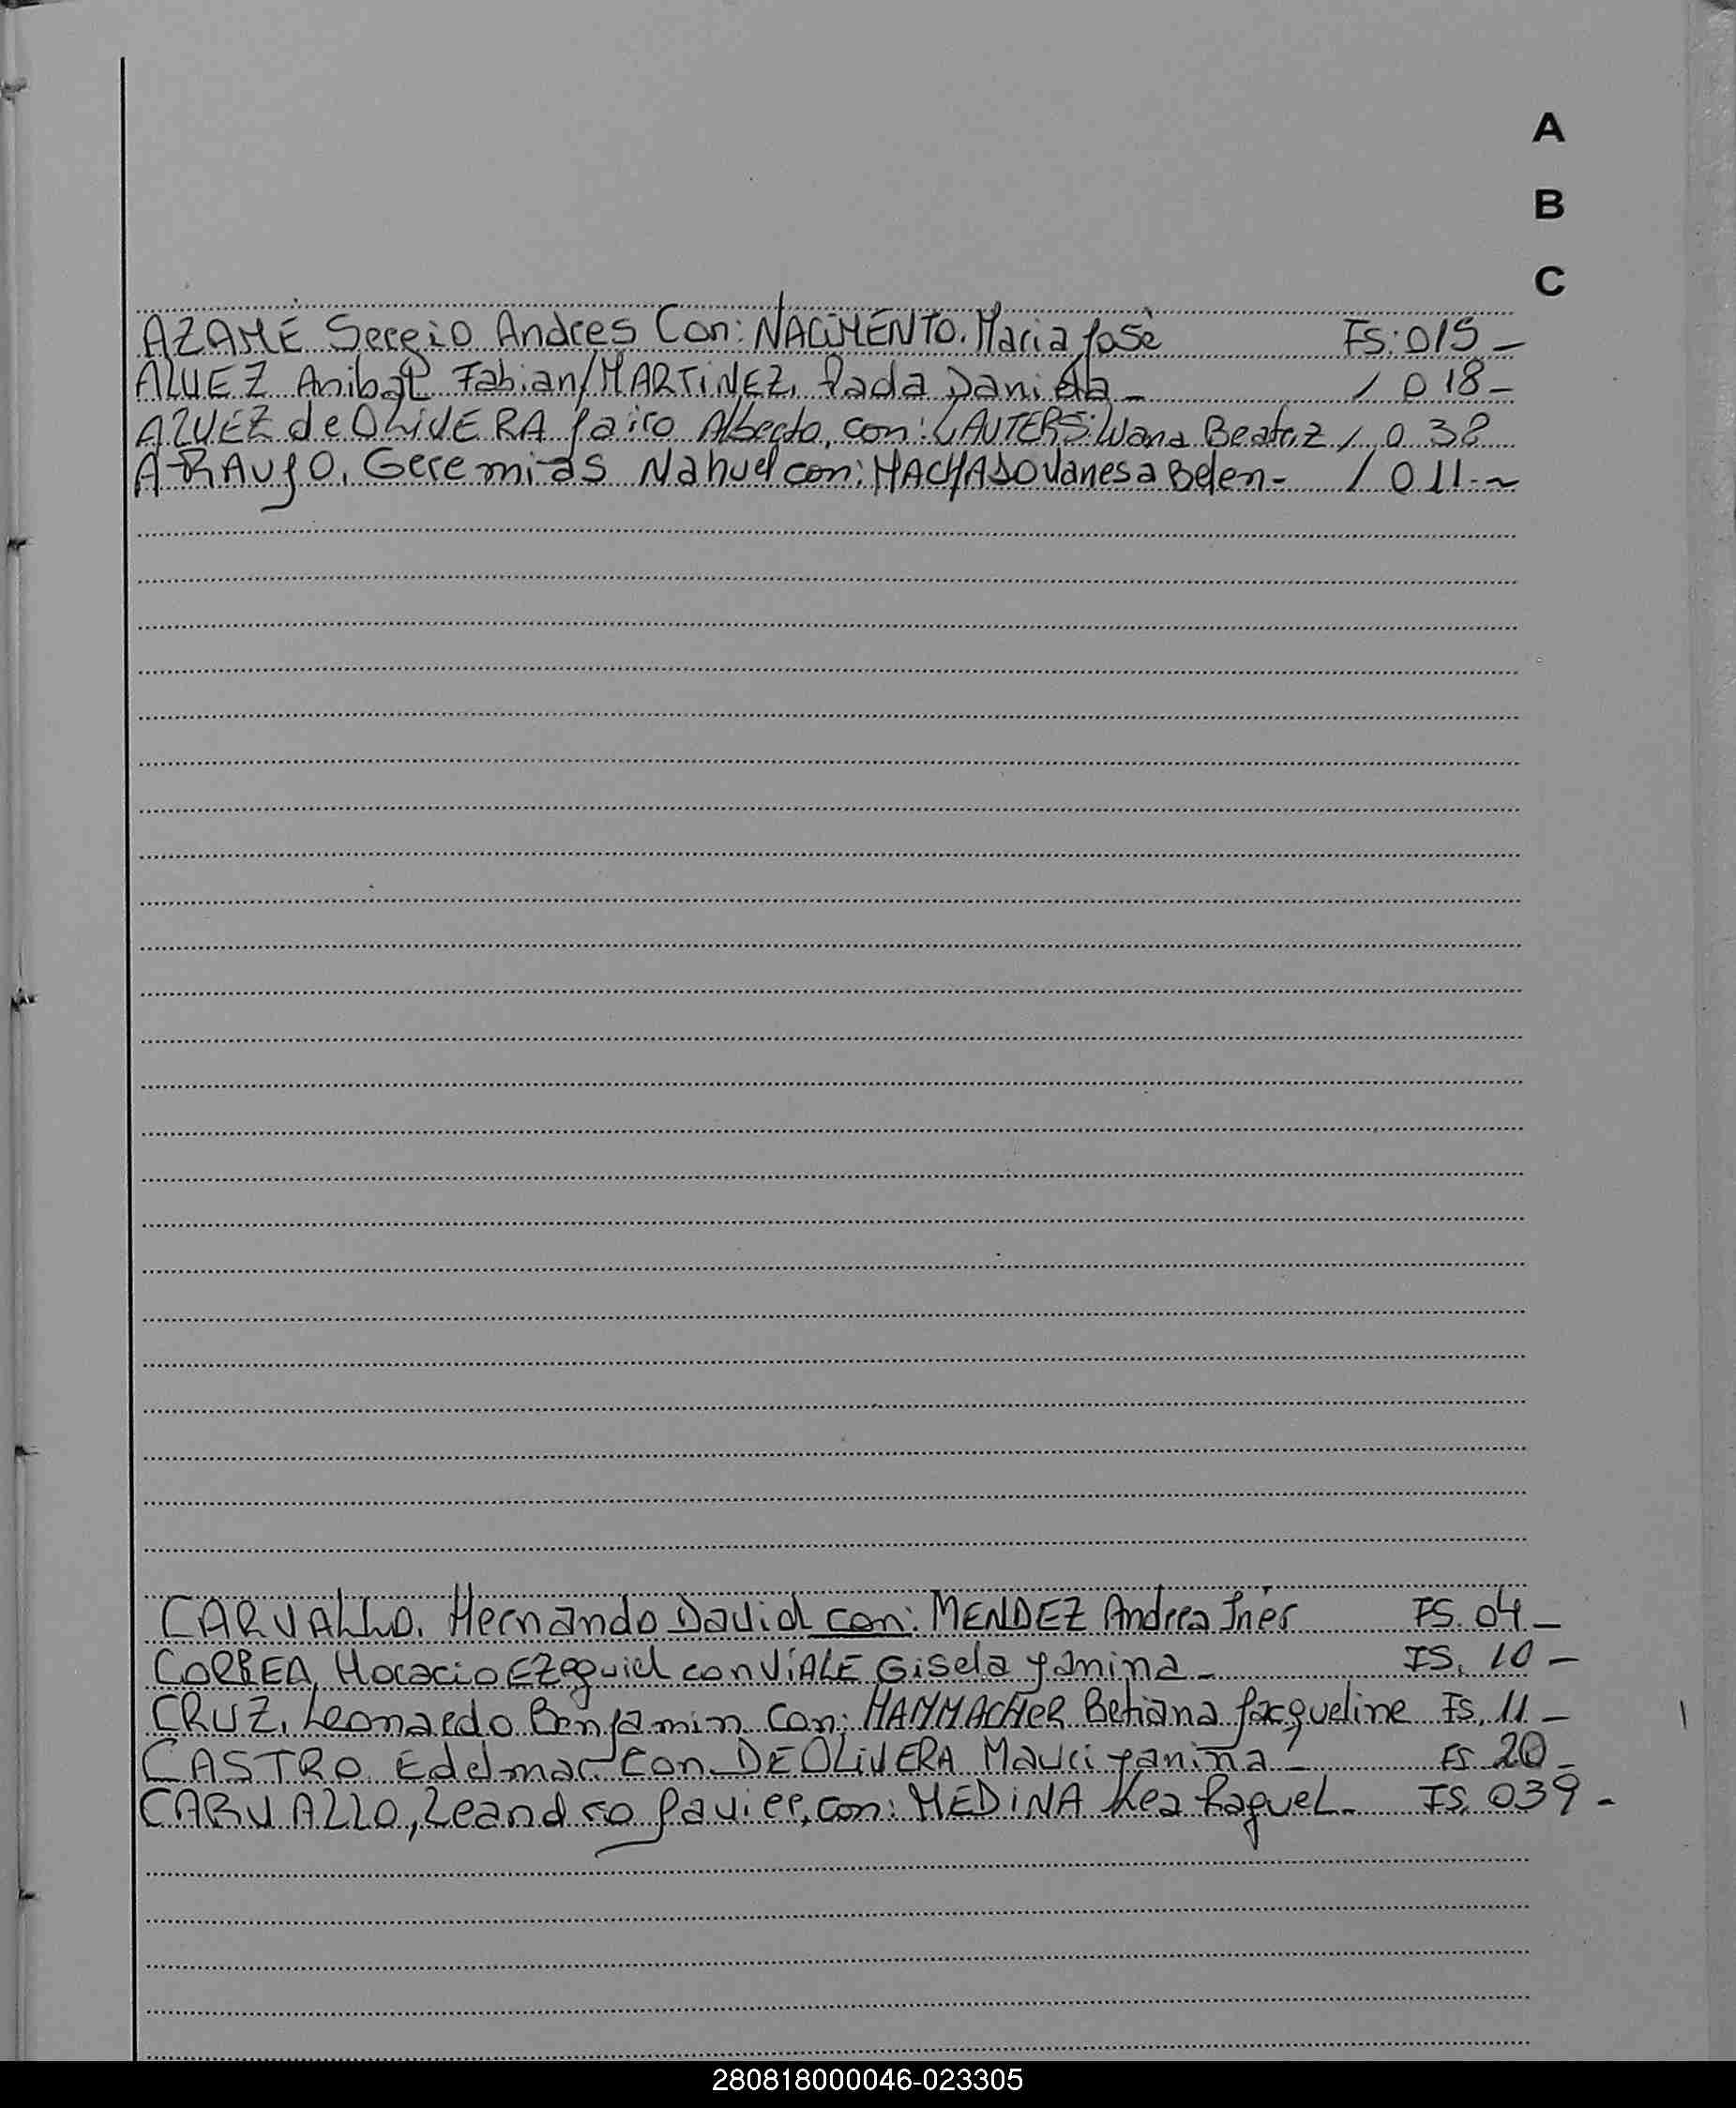 A
B
C
AZAME Sergio Andres Con: NACIMENTO. Maria Josè Fs: 015 -
ALVEZ Anibal Fabian/MARTiNEZ, Daniela - / 018 -
ALVEZ de OLiVERA Jairo Alberto, con: LAUTERS: Beatriz / 038
ARAUJO, Geremias Nahuel con: MACHADO Vanesa Belen - / 011 - ~
CARVALLO, Hernando David con: MENDEZ Andrea Inés FS. 04 -
CORREA, Horacio EZequiel con ViALE Gisela Yanina - FS. 10 -
CRUZ, Leonardo Benjamin con: HAMMACHER Betiana Jacqueline Fs, 11 -
CASTRO Edelmar Con DE OLiVERA Yanina - FS 20 -
CARVALLO, Leandro Javier, con: MEDiNA Lea Raquel - FS. 039 -
280818000046-023305